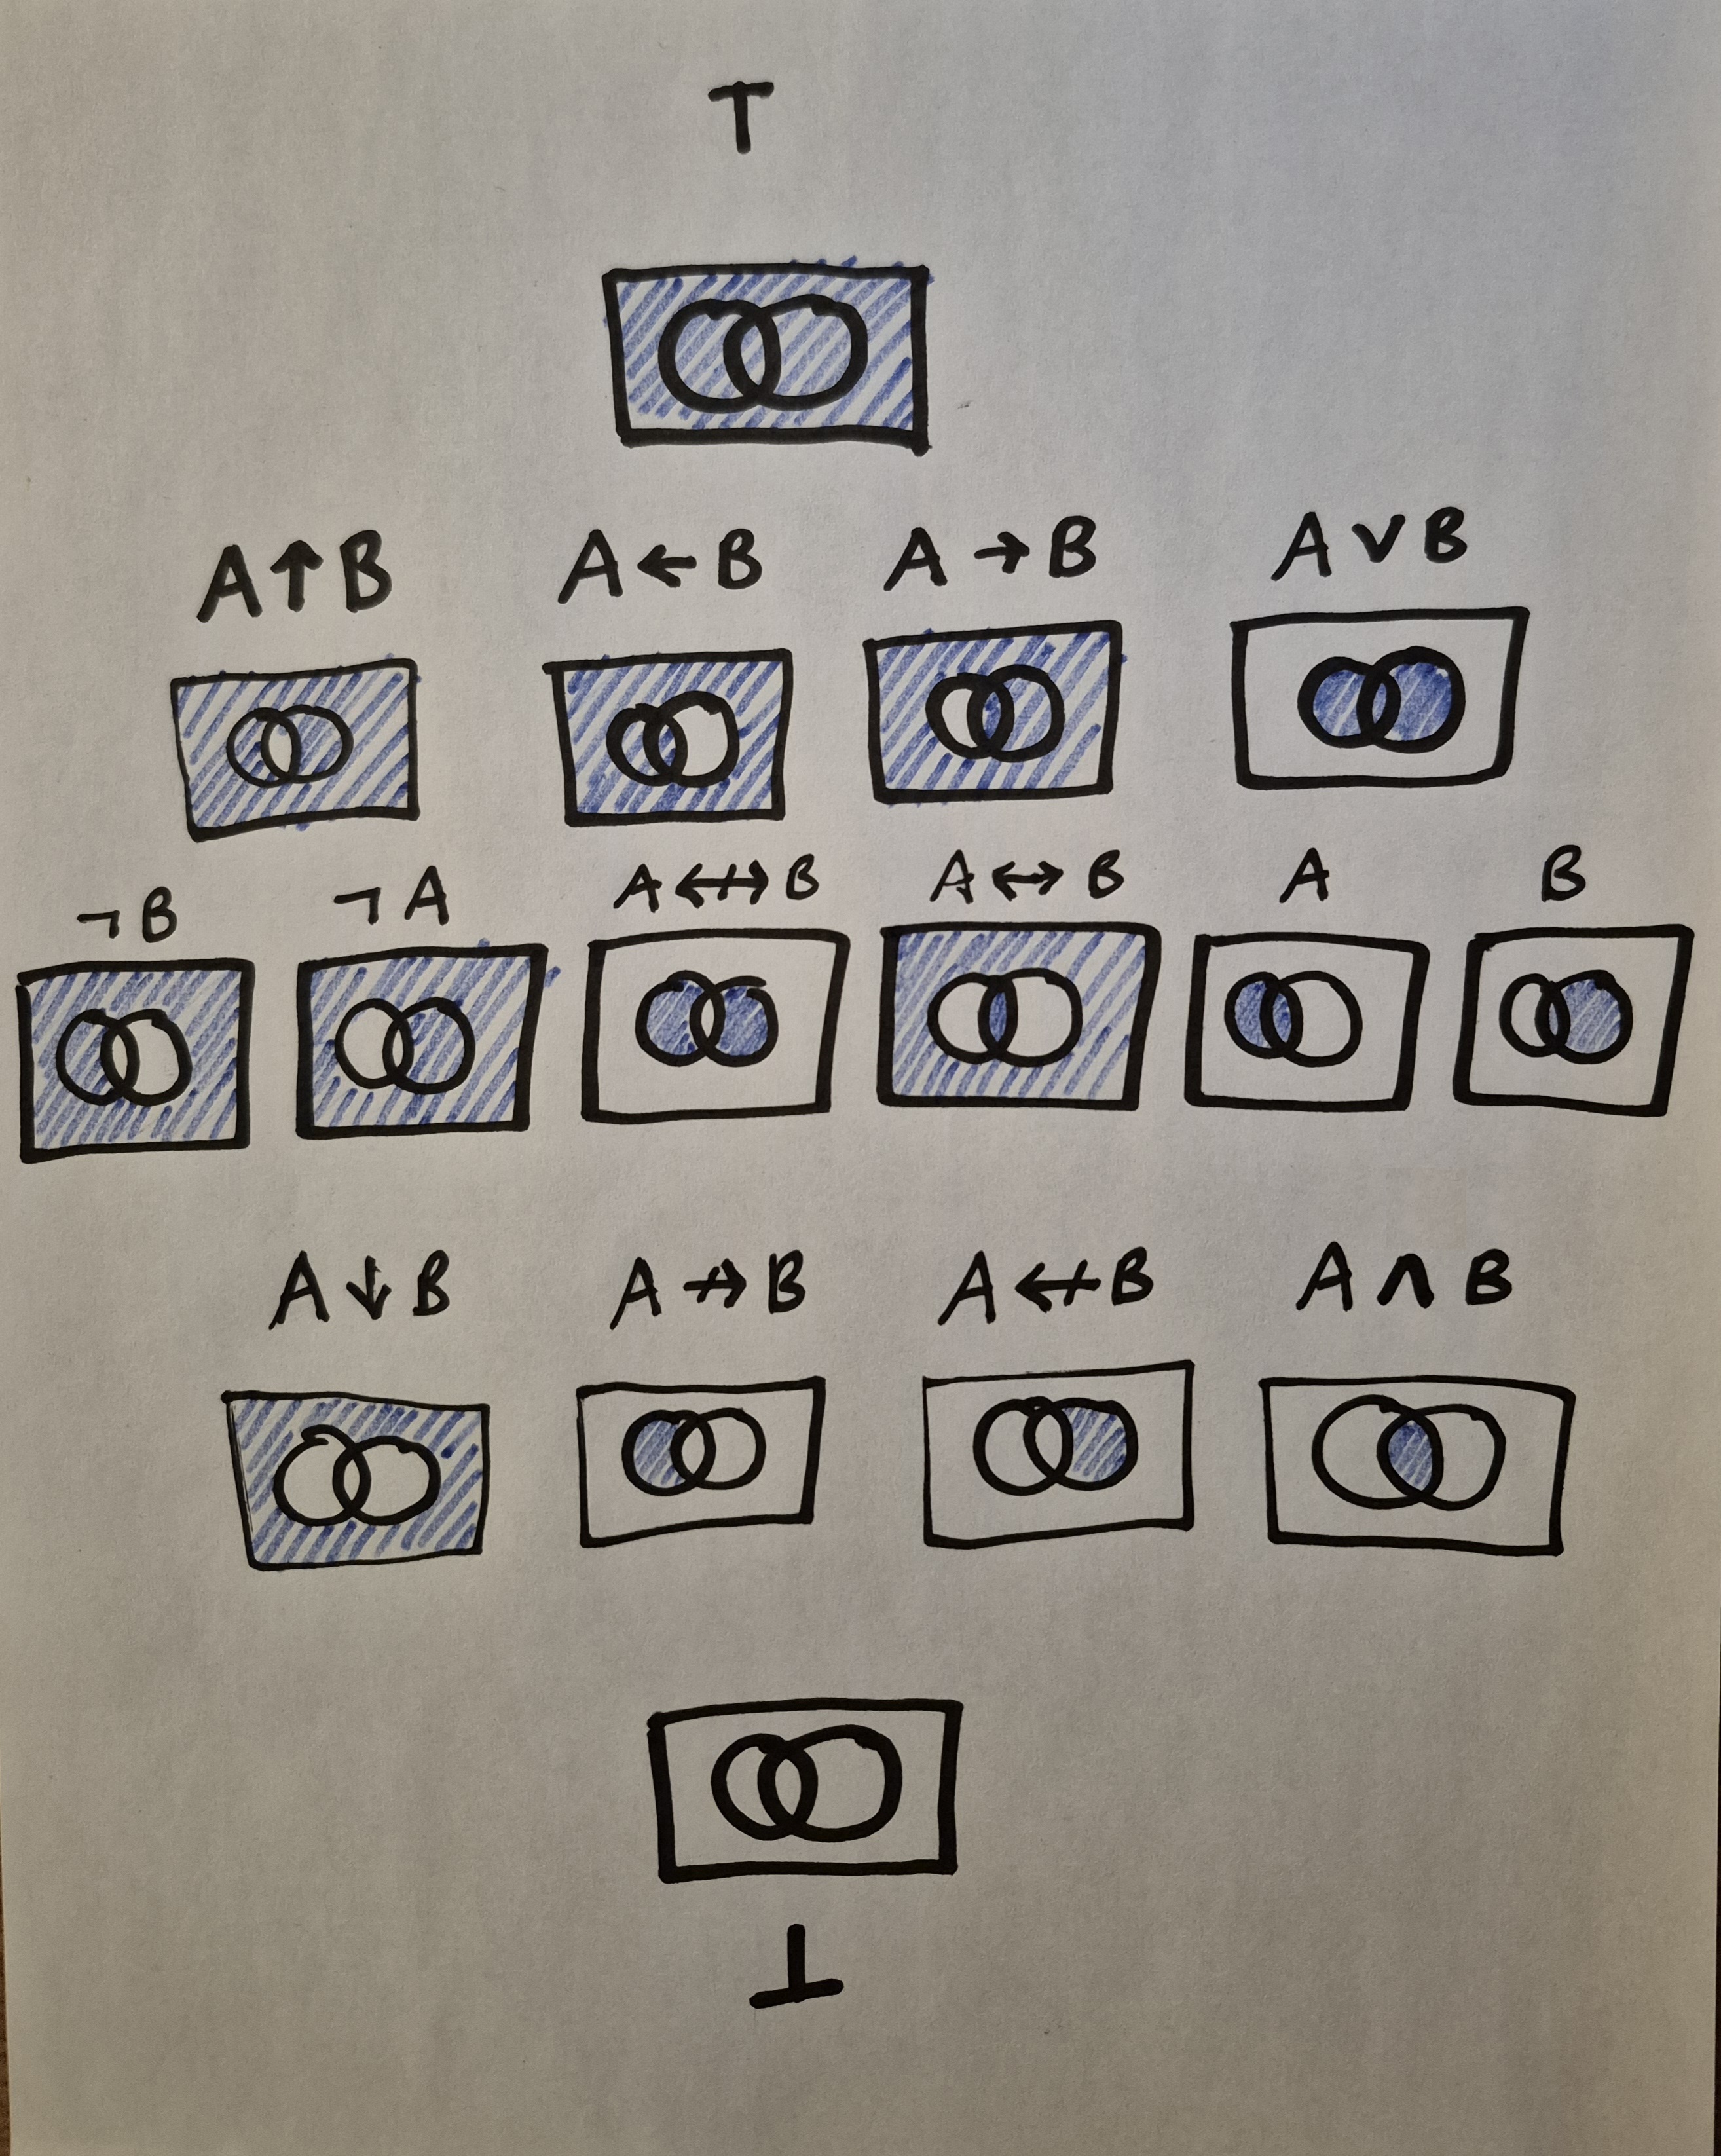 T
A↑B A←B A→B A∨B
¬B ¬A A↮B A↔B A B
A↓B A↛B A↚B A∧B
⊥